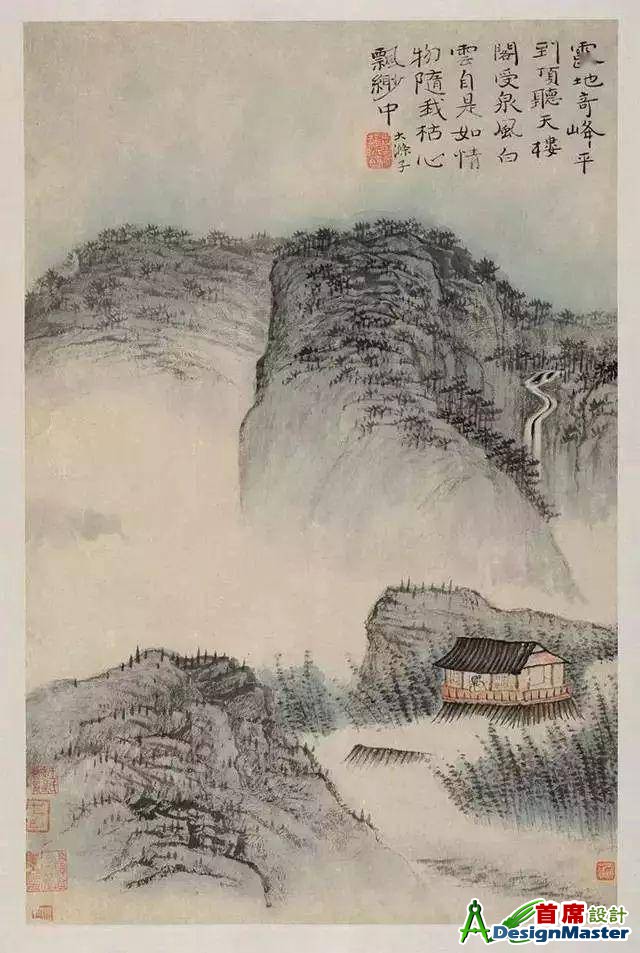 地奇峰平
到頂聽天樓
閣受泉風白
雲自是如情
物隨我枯心
飄緲中
大滌子
首席設計
ADesignMaster